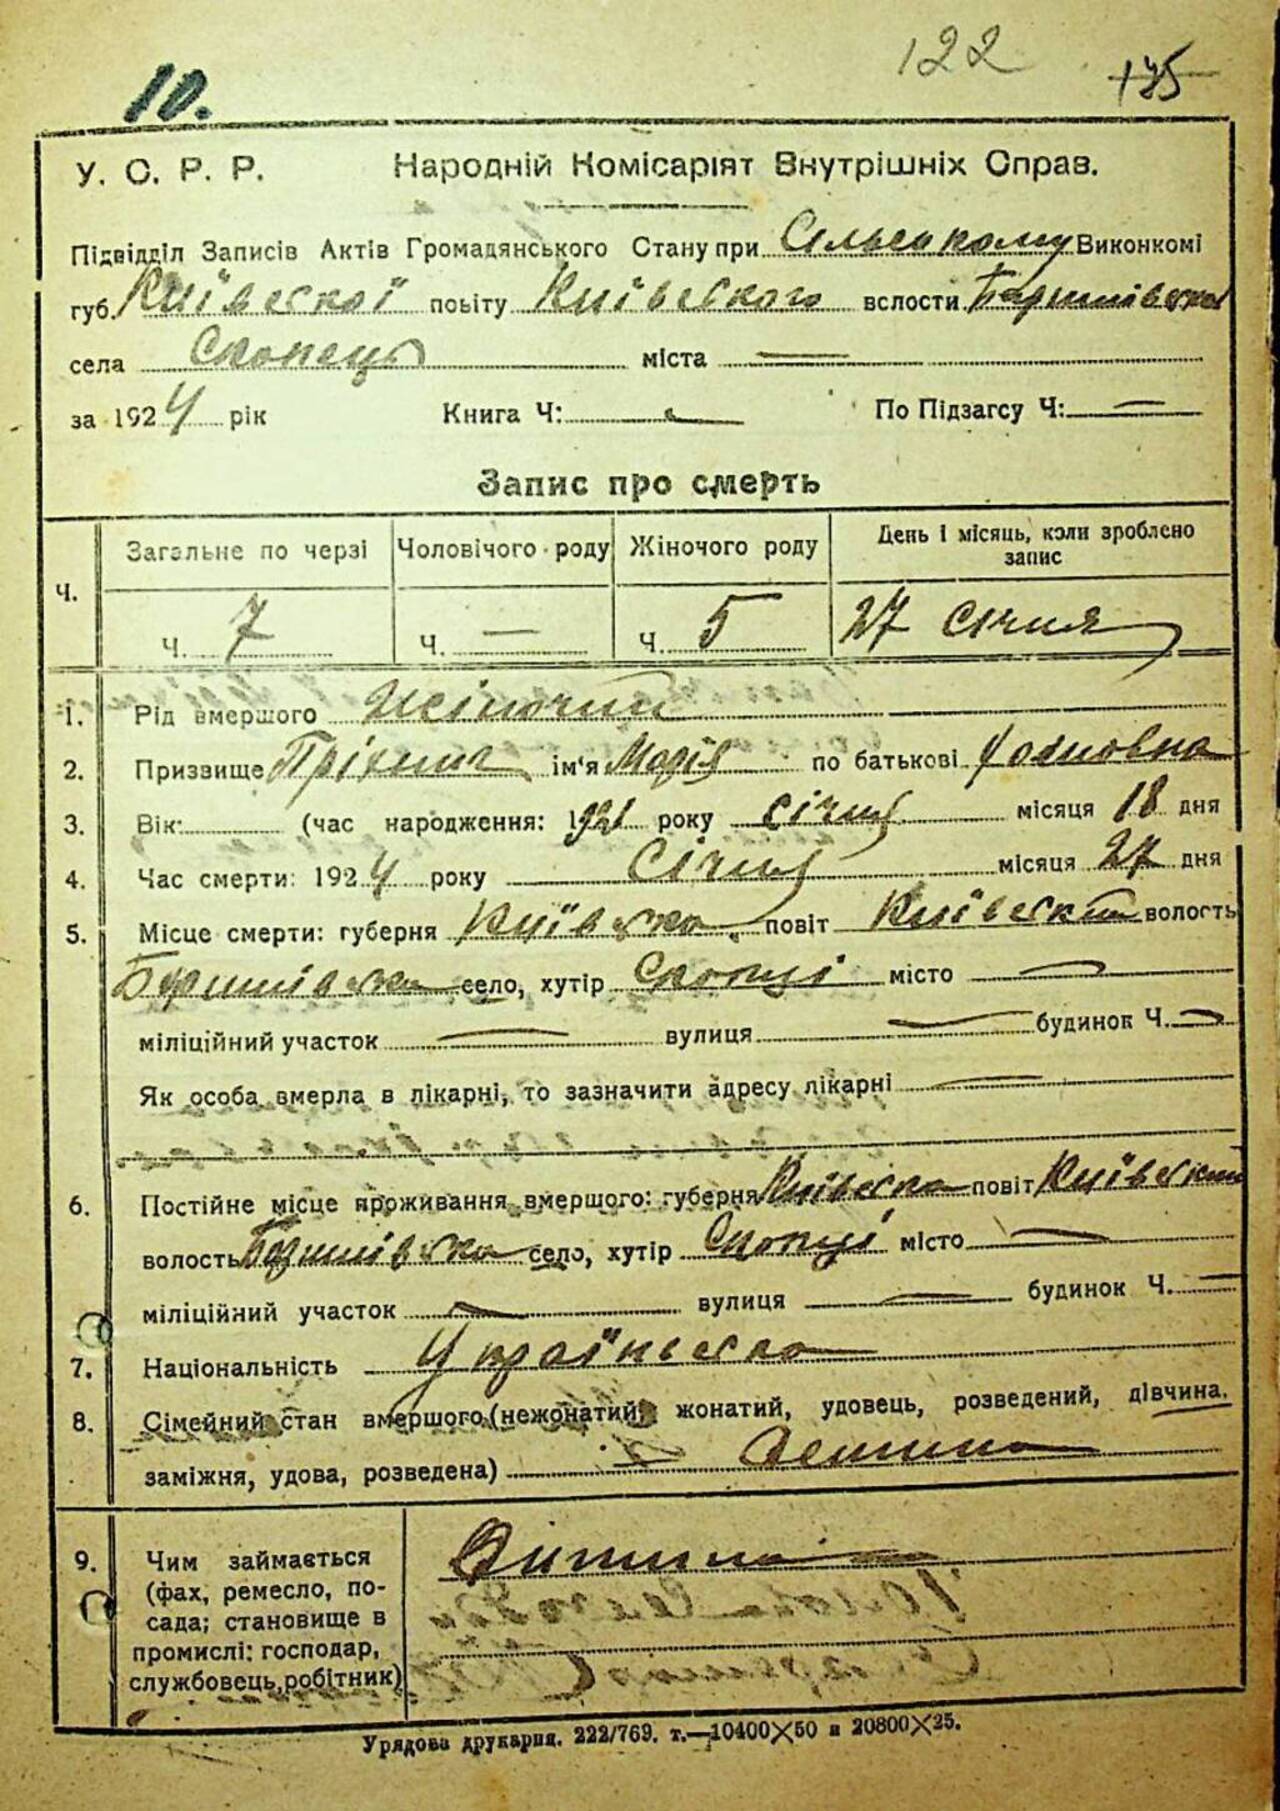 122 135
10.
У. С. Р. Р. Народній Комісаріят Внутрішніх Справ.
Підвідділ Записів Актів Громадянського Стану при Сільському Виконкомі
губ. Київської повіту Київського волости Баришівська
села Скопець міста —
за 1924 рік Книга Ч: — По Підзагсу Ч: —
Запис про смерть
Ч. Загальне по черзі Чоловічого роду Жіночого роду День і місяць, коли зроблено запис
Ч. 7 Ч. — Ч. 5 27 січня
1. Рід вмершого Жіночий
2. Призвище ім'я Марія по батькові
3. Вік: (час народження: 1921 року січня місяця 18 дня
4. Час смерти: 1924 року Січня місяця 27 дня
5. Місце смерти: губерня Київська повіт Київський волость
Баришівська село, хутір Скопці місто —
міліційний участок — вулиця — будинок Ч. —
Як особа вмерла в лікарні, то зазначити адресу лікарні —
6. Постійне місце проживання вмершого: губерня Київська повіт Київский
волость Баришівска село, хутір Скопці місто —
міліційний участок — вулиця — будинок Ч. —
7. Національність Українська
8. Сімейний стан вмершого (нежонатий, жонатий, удовець, розведений, дівчина,
заміжня, удова, розведена) Детина
9. Чим займається Дитина
(фах, ремесло, по-
сада; становище в
промислі: господар,
службовець, робітник)
Урядова друкарня. 222/769. т.—10400×50 и 20800×25.